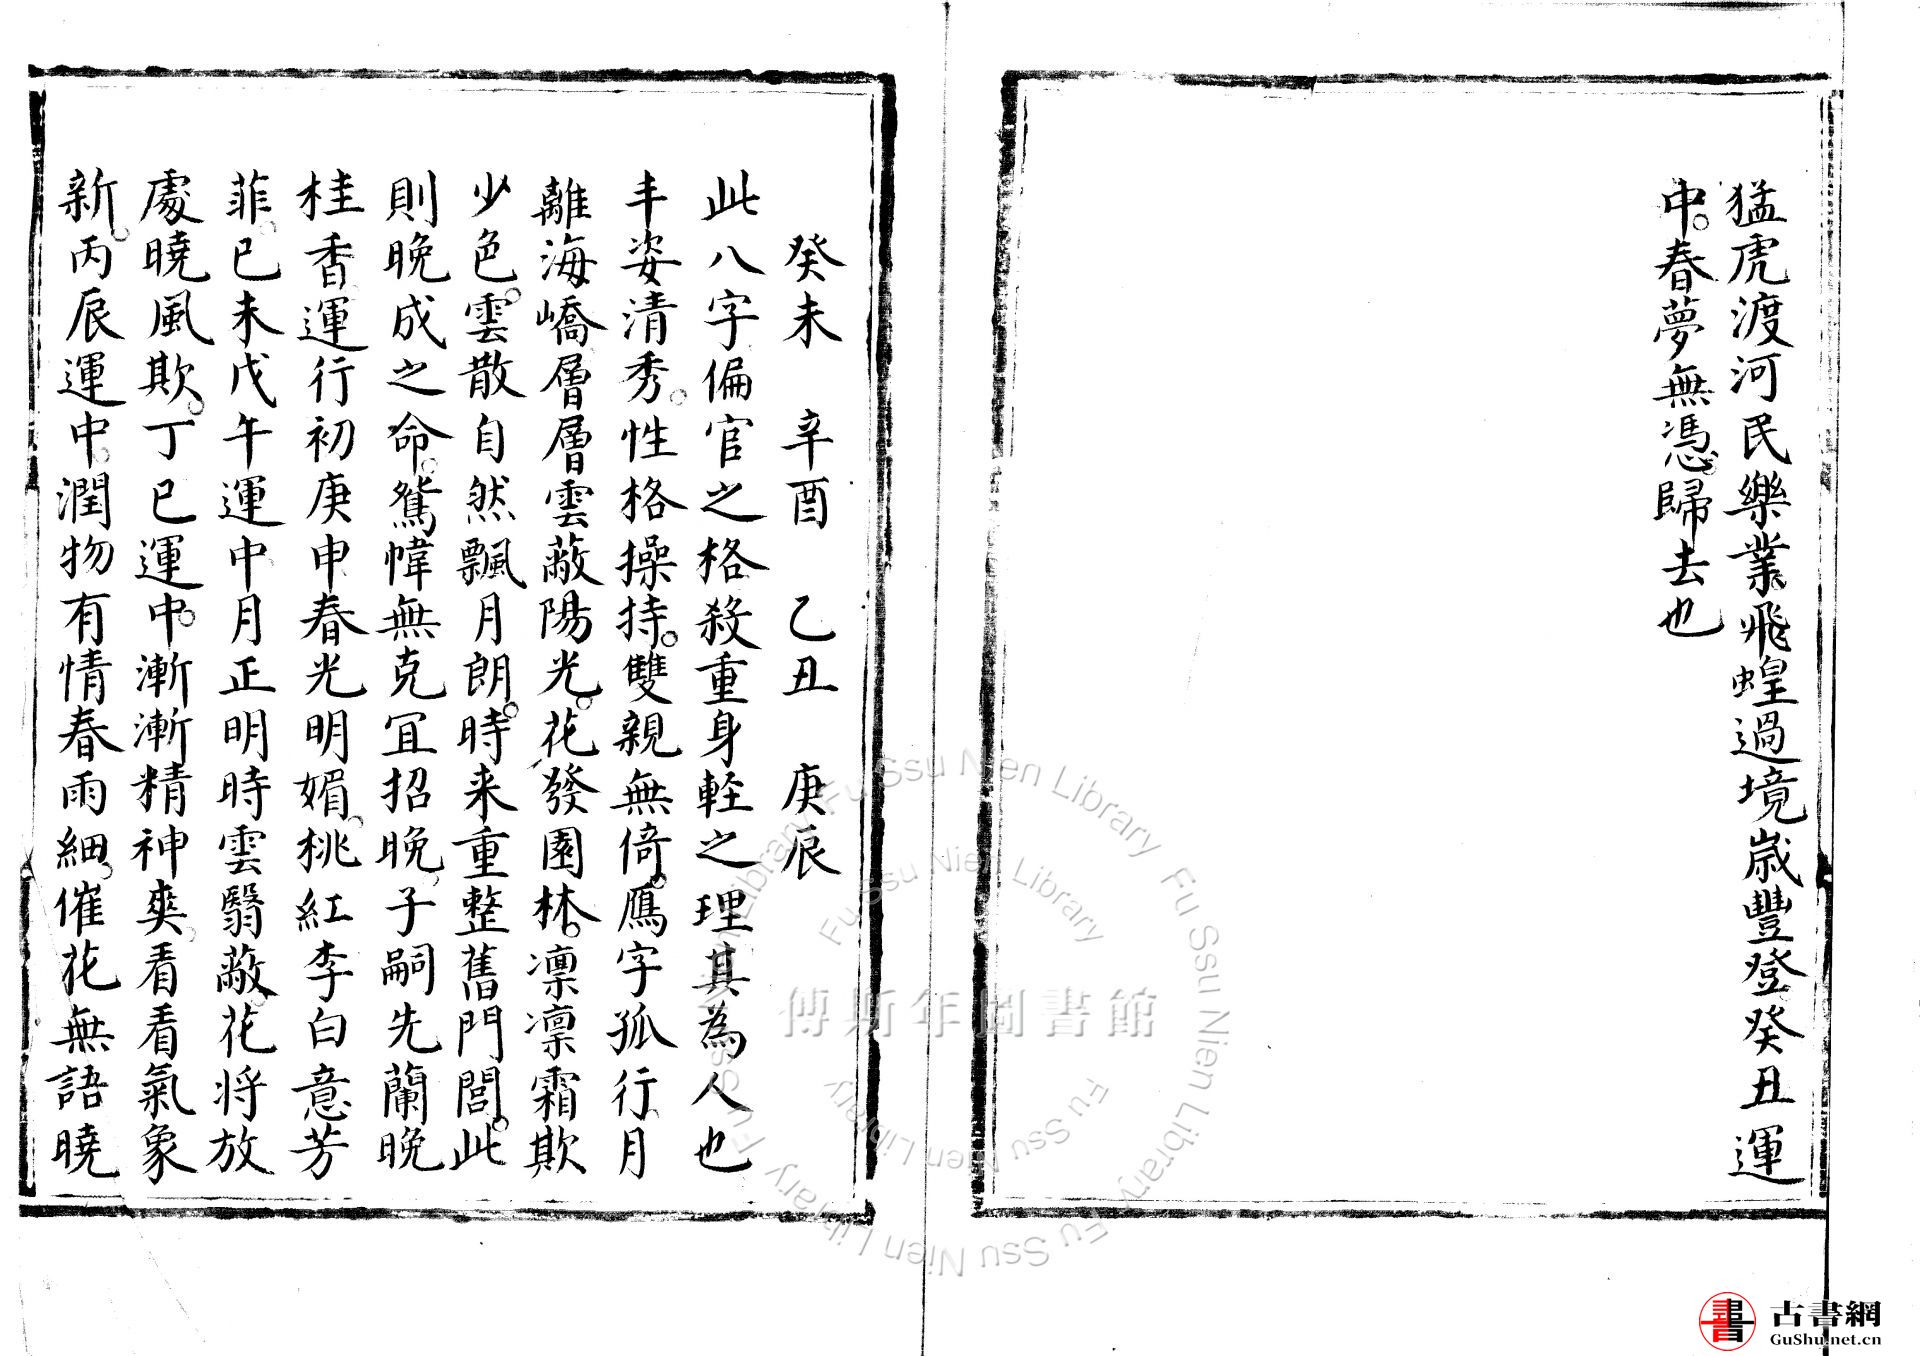 猛虎渡河民樂業飛蝗過境歲豐登癸丑運
中春夢無憑歸去也
癸未 辛酉 乙丑 庚辰
此八字偏官之格殺重身軽之理其為人也
丰姿清秀性格操持雙親無倚鴈字孤行月
離海嶠層層雲蔽陽光花發園林凛凛霜欺
少色雲散自然飄月朗時来重整舊門閭此
則晚成之命鴛幃無克冝招晚子嗣先蘭晚
桂香運行初庚申春光明媚桃紅李白意芳
菲已未戊午運中月正明時雲翳蔽花将放
處曉風欺丁巳運中漸漸精神爽看看氣象
新丙辰運中潤物有情春雨細催花無語曉
傅斯年圖書館
Fu Ssu Nien Library
古書網
GuShu.net.cn